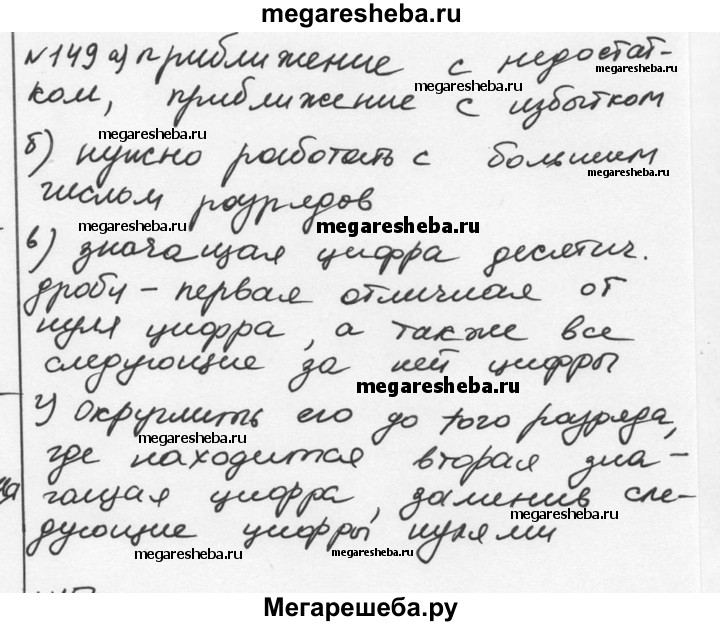 megaresheba.ru
№149 а) приближение с недостат-
megaresheba.ru
ком, приближение с избытком
megaresheba.ru
megaresheba.ru
б) нужно работать с большим
megaresheba.ru
числом разрядов
megaresheba.ru
megaresheba.ru
в) значащая цифра десятич.
дроби - первая отличная от
нуля цифра, а также все
следующие за ней цифры
megaresheba.ru
г) Округлить его до того разряда,
megaresheba.ru
где находится вторая зна-
megaresheba.ru
чащая цифра, заменив сле-
дующие цифры нулями
megaresheba.ru
megaresheba.ru
Мегарешеба.ру